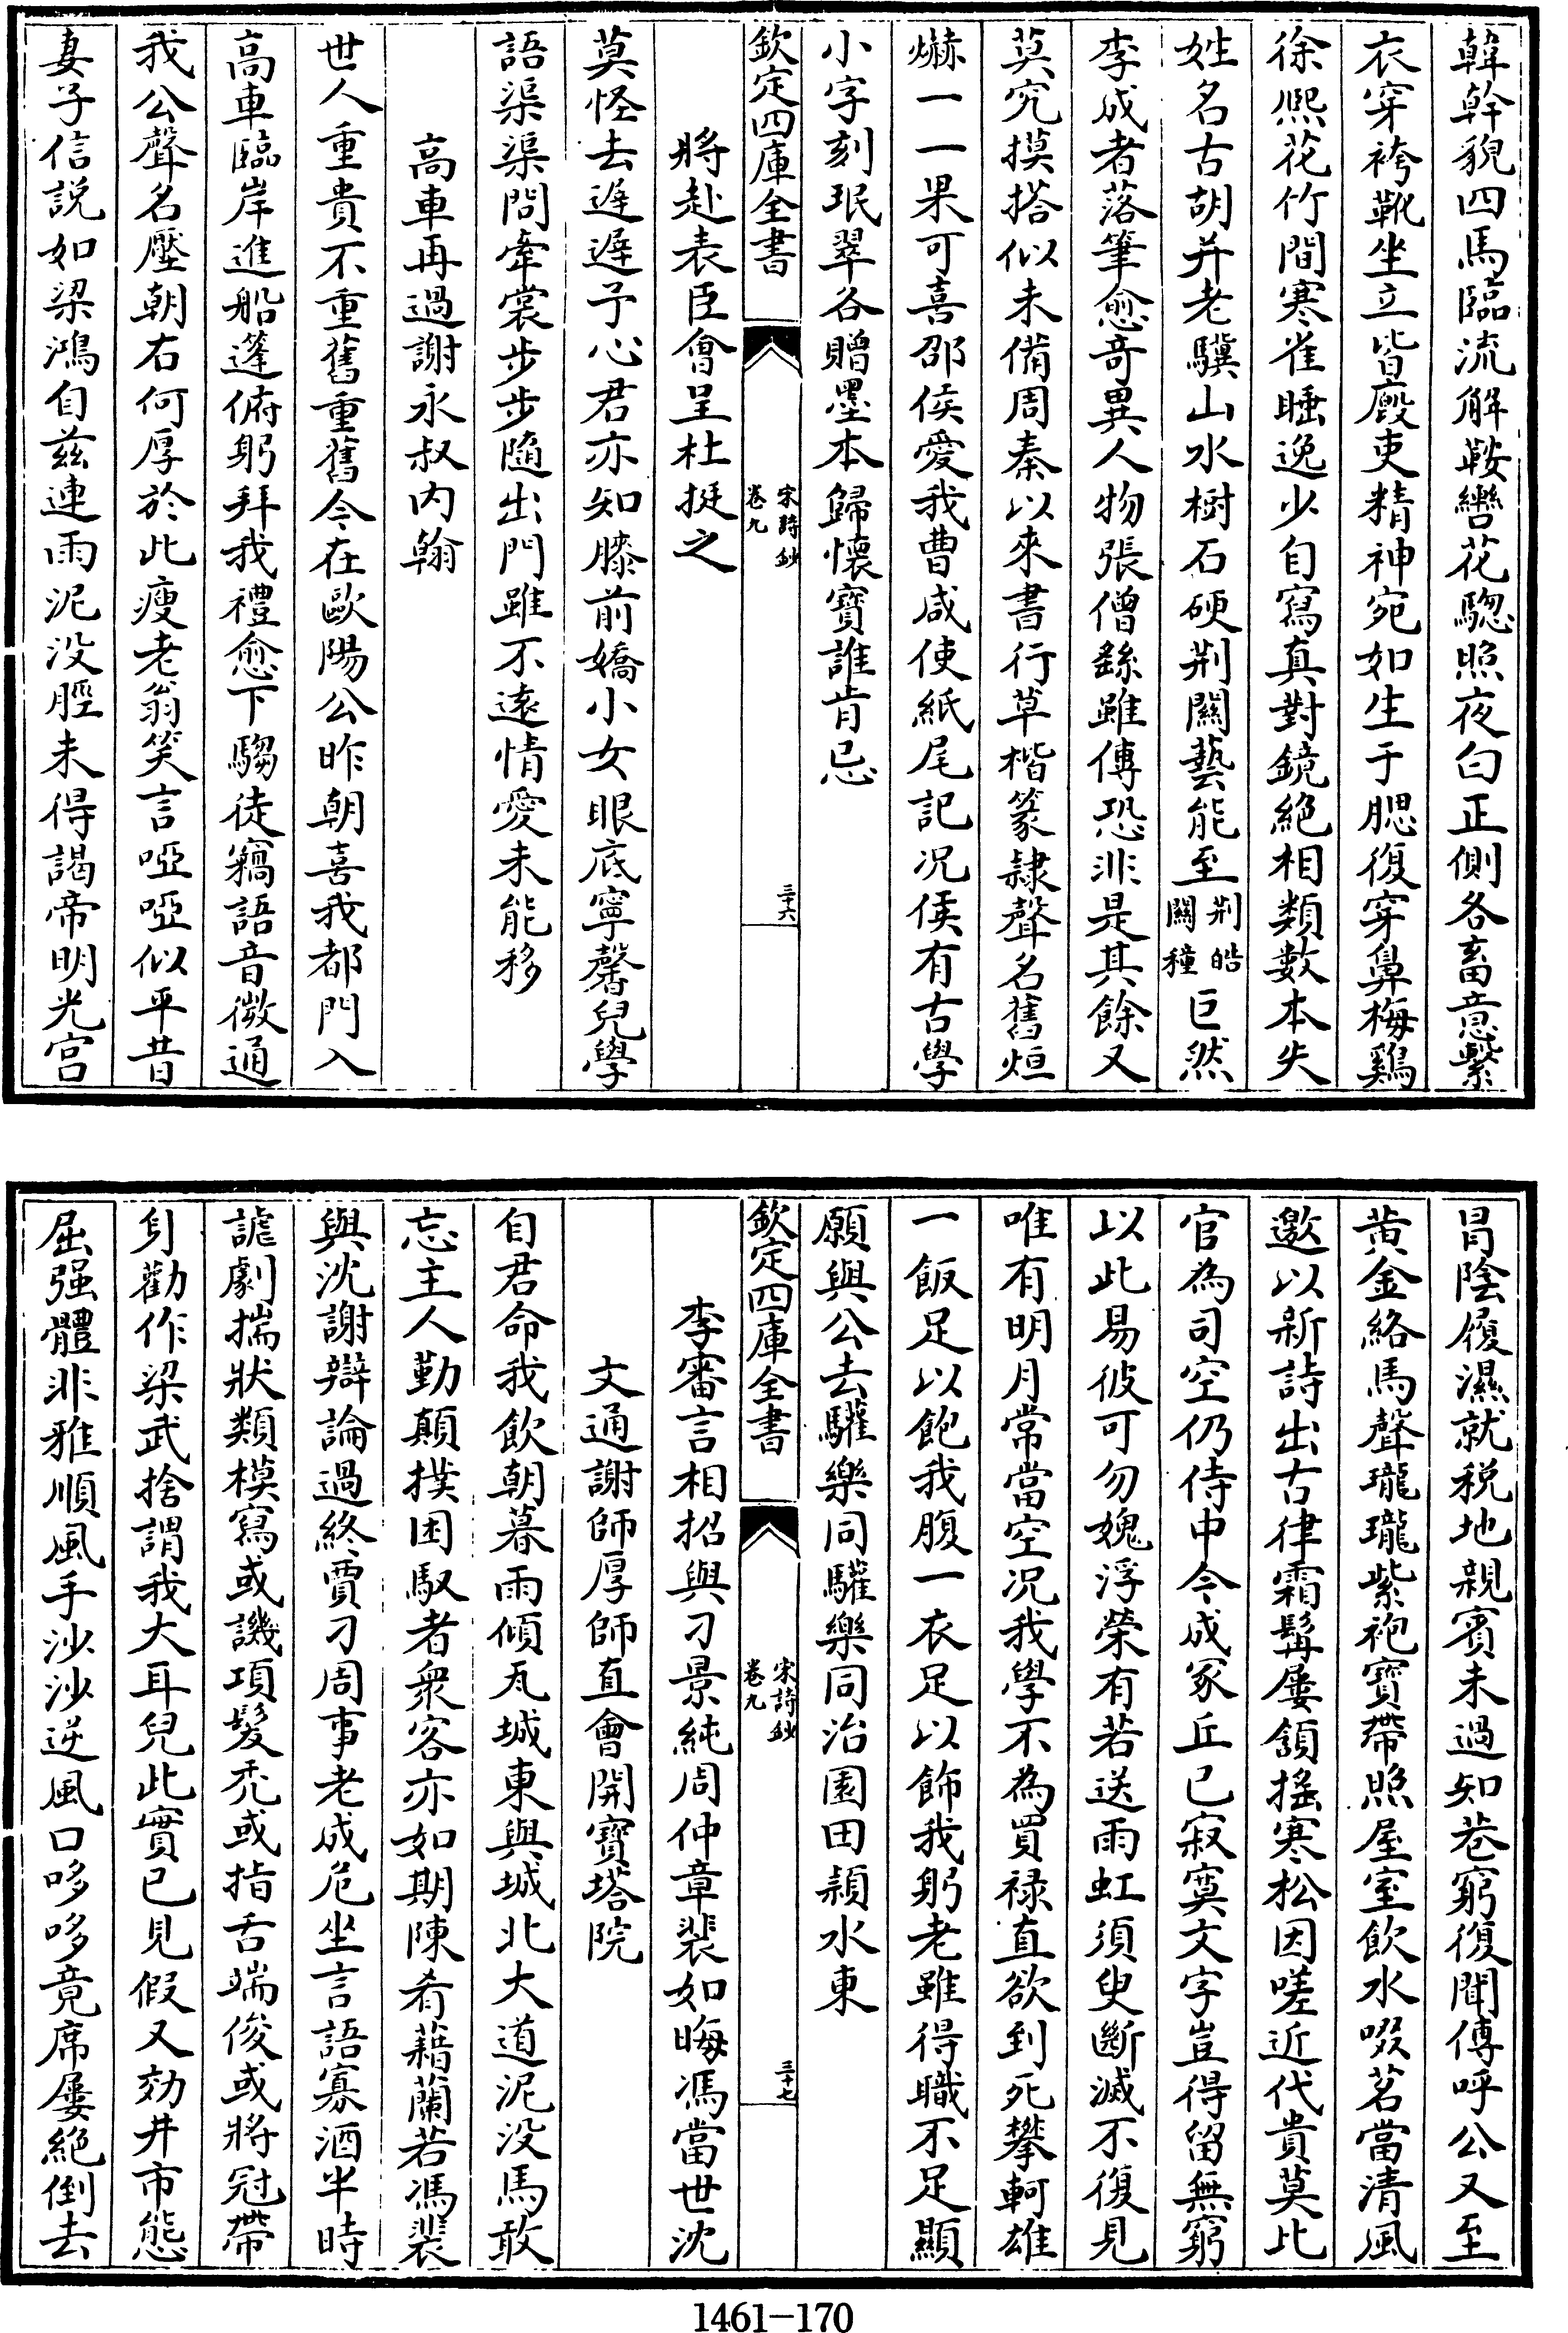 韓幹貌四馬臨流解鞍轡花驄照夜白正側各畜意縶
衣穿袴靴坐立皆廐吏精神宛如生于腮復穿鼻梅鷄
徐熈花竹間寒雀睡逸少自寫真對鏡絶相類數本失
姓名古胡并老驥山水樹石硬荆關藝能至荆皓關穜巨然
李成者落筆愈竒異人物張僧繇雖傳恐非是其餘又
莫究摸搭似未備周秦以來書行草楷篆隷聲名舊烜
爀一一果可喜邵侯愛我曹咸使紙尾記况侯有古學
小字刻珉翠各贈墨本歸懷寶誰肯忌
欽定四庫全書
宋詩鈔
卷九
三十六
將赴表臣會呈杜挺之
莫怪去遲遲予心君亦知膝前嬌小女眼底寧馨兒學
語渠渠問牽裳步步隨出門雖不遠情愛未能移
高車再過謝永叔内翰
世人重貴不重舊重舊今在歐陽公昨朝喜我都門入
高車臨岸進船篷俯躬拜我禮愈下騶徒竊語音微通
我公聲名壓朝右何厚於此瘦老翁笑言啞啞似平昔
妻子信説如梁鴻自兹連雨泥没脛未得謁帝明光宫
冐陰履濕就税地親賓未過知巷窮復聞傳呼公又至
黄金絡馬聲瓏瓏紫袍寶帶照屋室飲水啜茗當清風
邀以新詩出古律霜髯屢頷摇寒松因嗟近代貴莫比
官為司空仍侍中今成冢丘已寂寞文字豈得留無窮
以此易彼可勿媿浮榮有若送雨虹須臾斷滅不復見
唯有明月常當空况我學不為買禄直欲到死攀軻雄
一飯足以飽我腹一衣足以飾我躬老雖得職不足顯
願與公去驩樂同驩樂同治園田潁水東
欽定四庫全書
宋詩鈔
卷九
三十七
李審言相招與刁景純周仲章裴如晦馮當世沈
文通謝師厚師直會開寶塔院
自君命我飲朝暮雨傾瓦城東與城北大道泥没馬敢
忘主人勤顛撲困馭者衆客亦如期陳肴藉蘭若馮裴
與沈謝辯論過終賈刁周事老成危坐言語寡酒半時
謔劇揣狀類模寫或譏項髮秃或指舌端俊或將冠帶
身勸作梁武捨謂我大耳兒此實已見假又効井市態
屈强體非雅順風手沙沙逆風口哆哆竟席屢絶倒去
1461-170